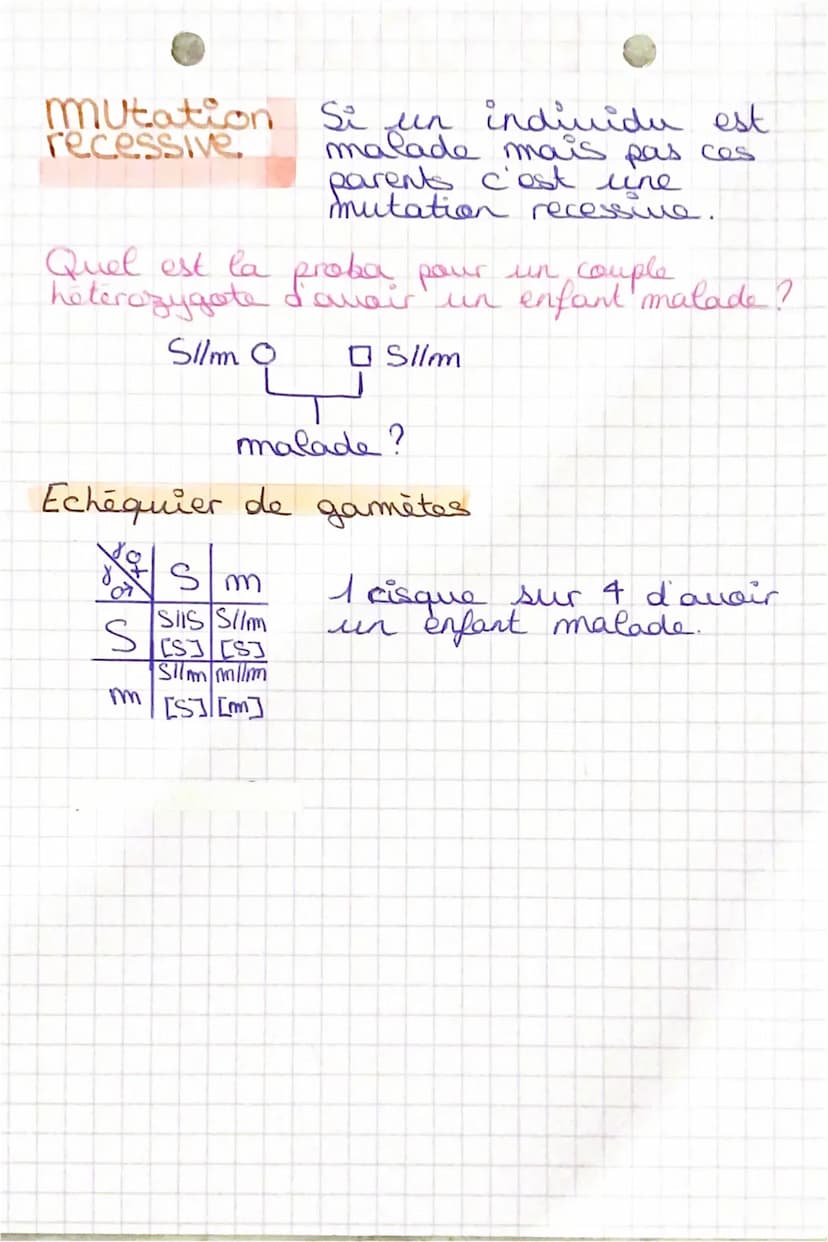 mutation
recessive
Si un individu est
malade mais pas ces
parents c'est une
mutation recessive.
Quel est la proba pour un couple
hétérozygote d'avoir un enfant malade?
S//m ○ □ S//m
malade?
Echéquier de gamètes
γ♀ S m
γ♂
S S//S S//m
[S] [S]
m S//m m//m
[S] [m]
1 risque sur 4 d'avoir
un enfant malade.